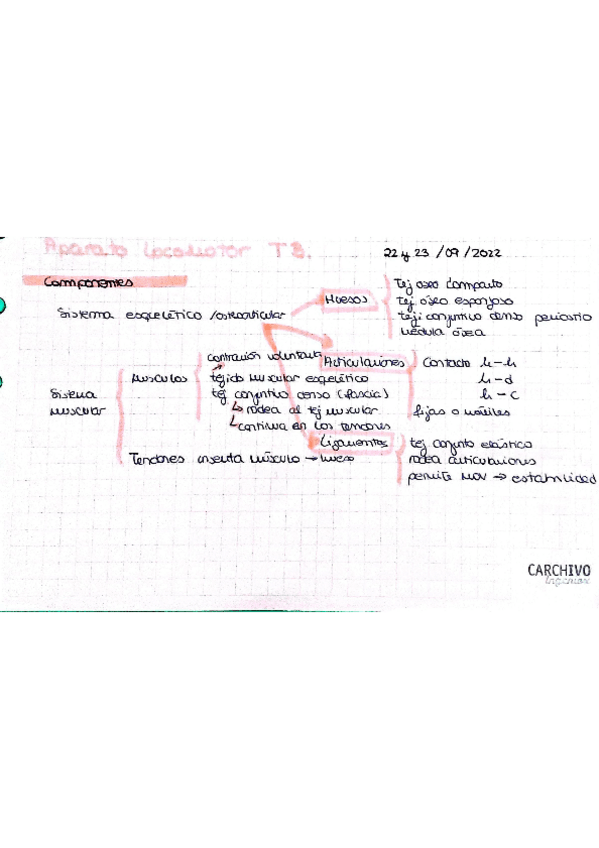 Aparato Locomotor T3.
22 y 23 /09/2022
Componentes
Sistema esquelético /osteoarticular
Huesos
Tej oseo compacto
Tej óseo esponjoso
teji conjuntivo denso periostio
Médula ósea
Articulaciones
Contacto h-h
h-d
h-c
fijas o móviles
Ligamentos
tej conjunto elástico
rodea articulaciones
permite MOV → estabilidad
Sistema
muscular
Musculos
contracción voluntaria
tejido muscular esquelético
tej conjuntivo denso (fascia)
rodea al tej muscular
continua en los tendones
Tendones inserta músculo → hueso
CARCHIVO
ingeniox